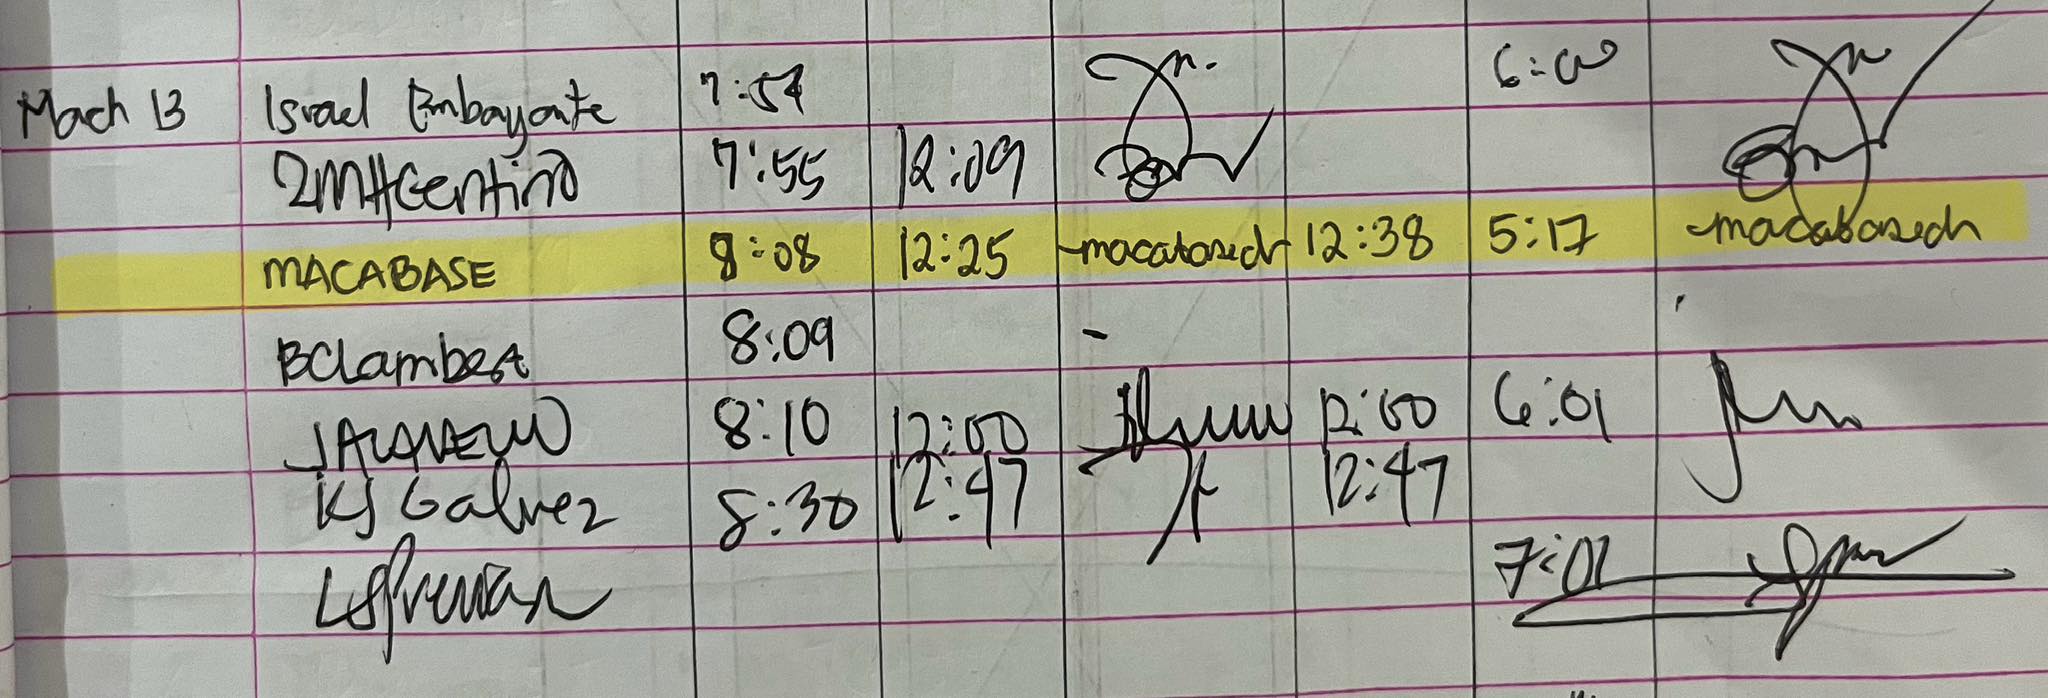 Mach 13 Israel Embayonte 7:54 6:00
2MHCentino 7:55 12:09
MACABASE 8:08 12:25 macabasedr 12:38 5:17 macabasedr
BClambert 8:09 -
8:10 12:00 12:00 6:01
KJ Galvez 8:30 12:47 12:47
7:01